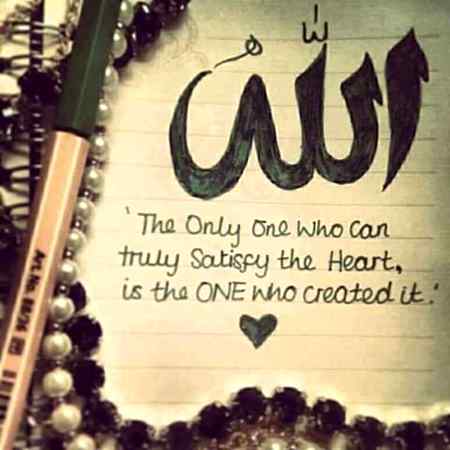 الله
'The Only one who can
truly Satisfy the Heart,
is the ONE who created it.'
Art.No. 88/36